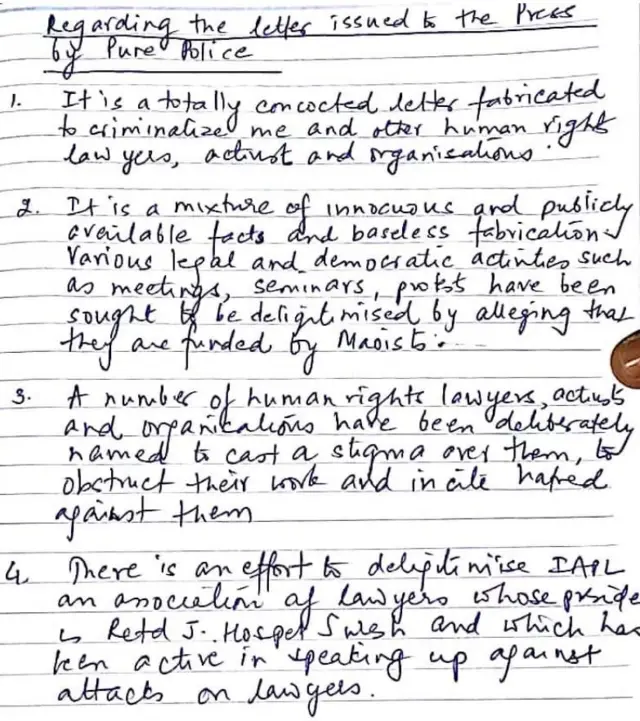 Regarding the letter issued to the Press
by Pune Police
1. It is a totally concocted letter fabricated
to criminalize me and other human right
lawyers, activist and organisations.
2. It is a mixture of innocuous and publicly
available facts and baseless fabrication.
Various legal and democratic activities such
as meetings, seminars, protests have been
sought to be deligitimised by alleging that
they are funded by Maoists.
3. A number of human rights lawyers, activists
and organisations have been deliberately
named to cast a stigma over them, to
obstruct their work and incite hatred
against them
4. There is an effort to deligitimise IAPL
an association of lawyers whose preside
is Retd J. Hospet Suresh and which has
been active in speaking up against
attacks on lawyers.